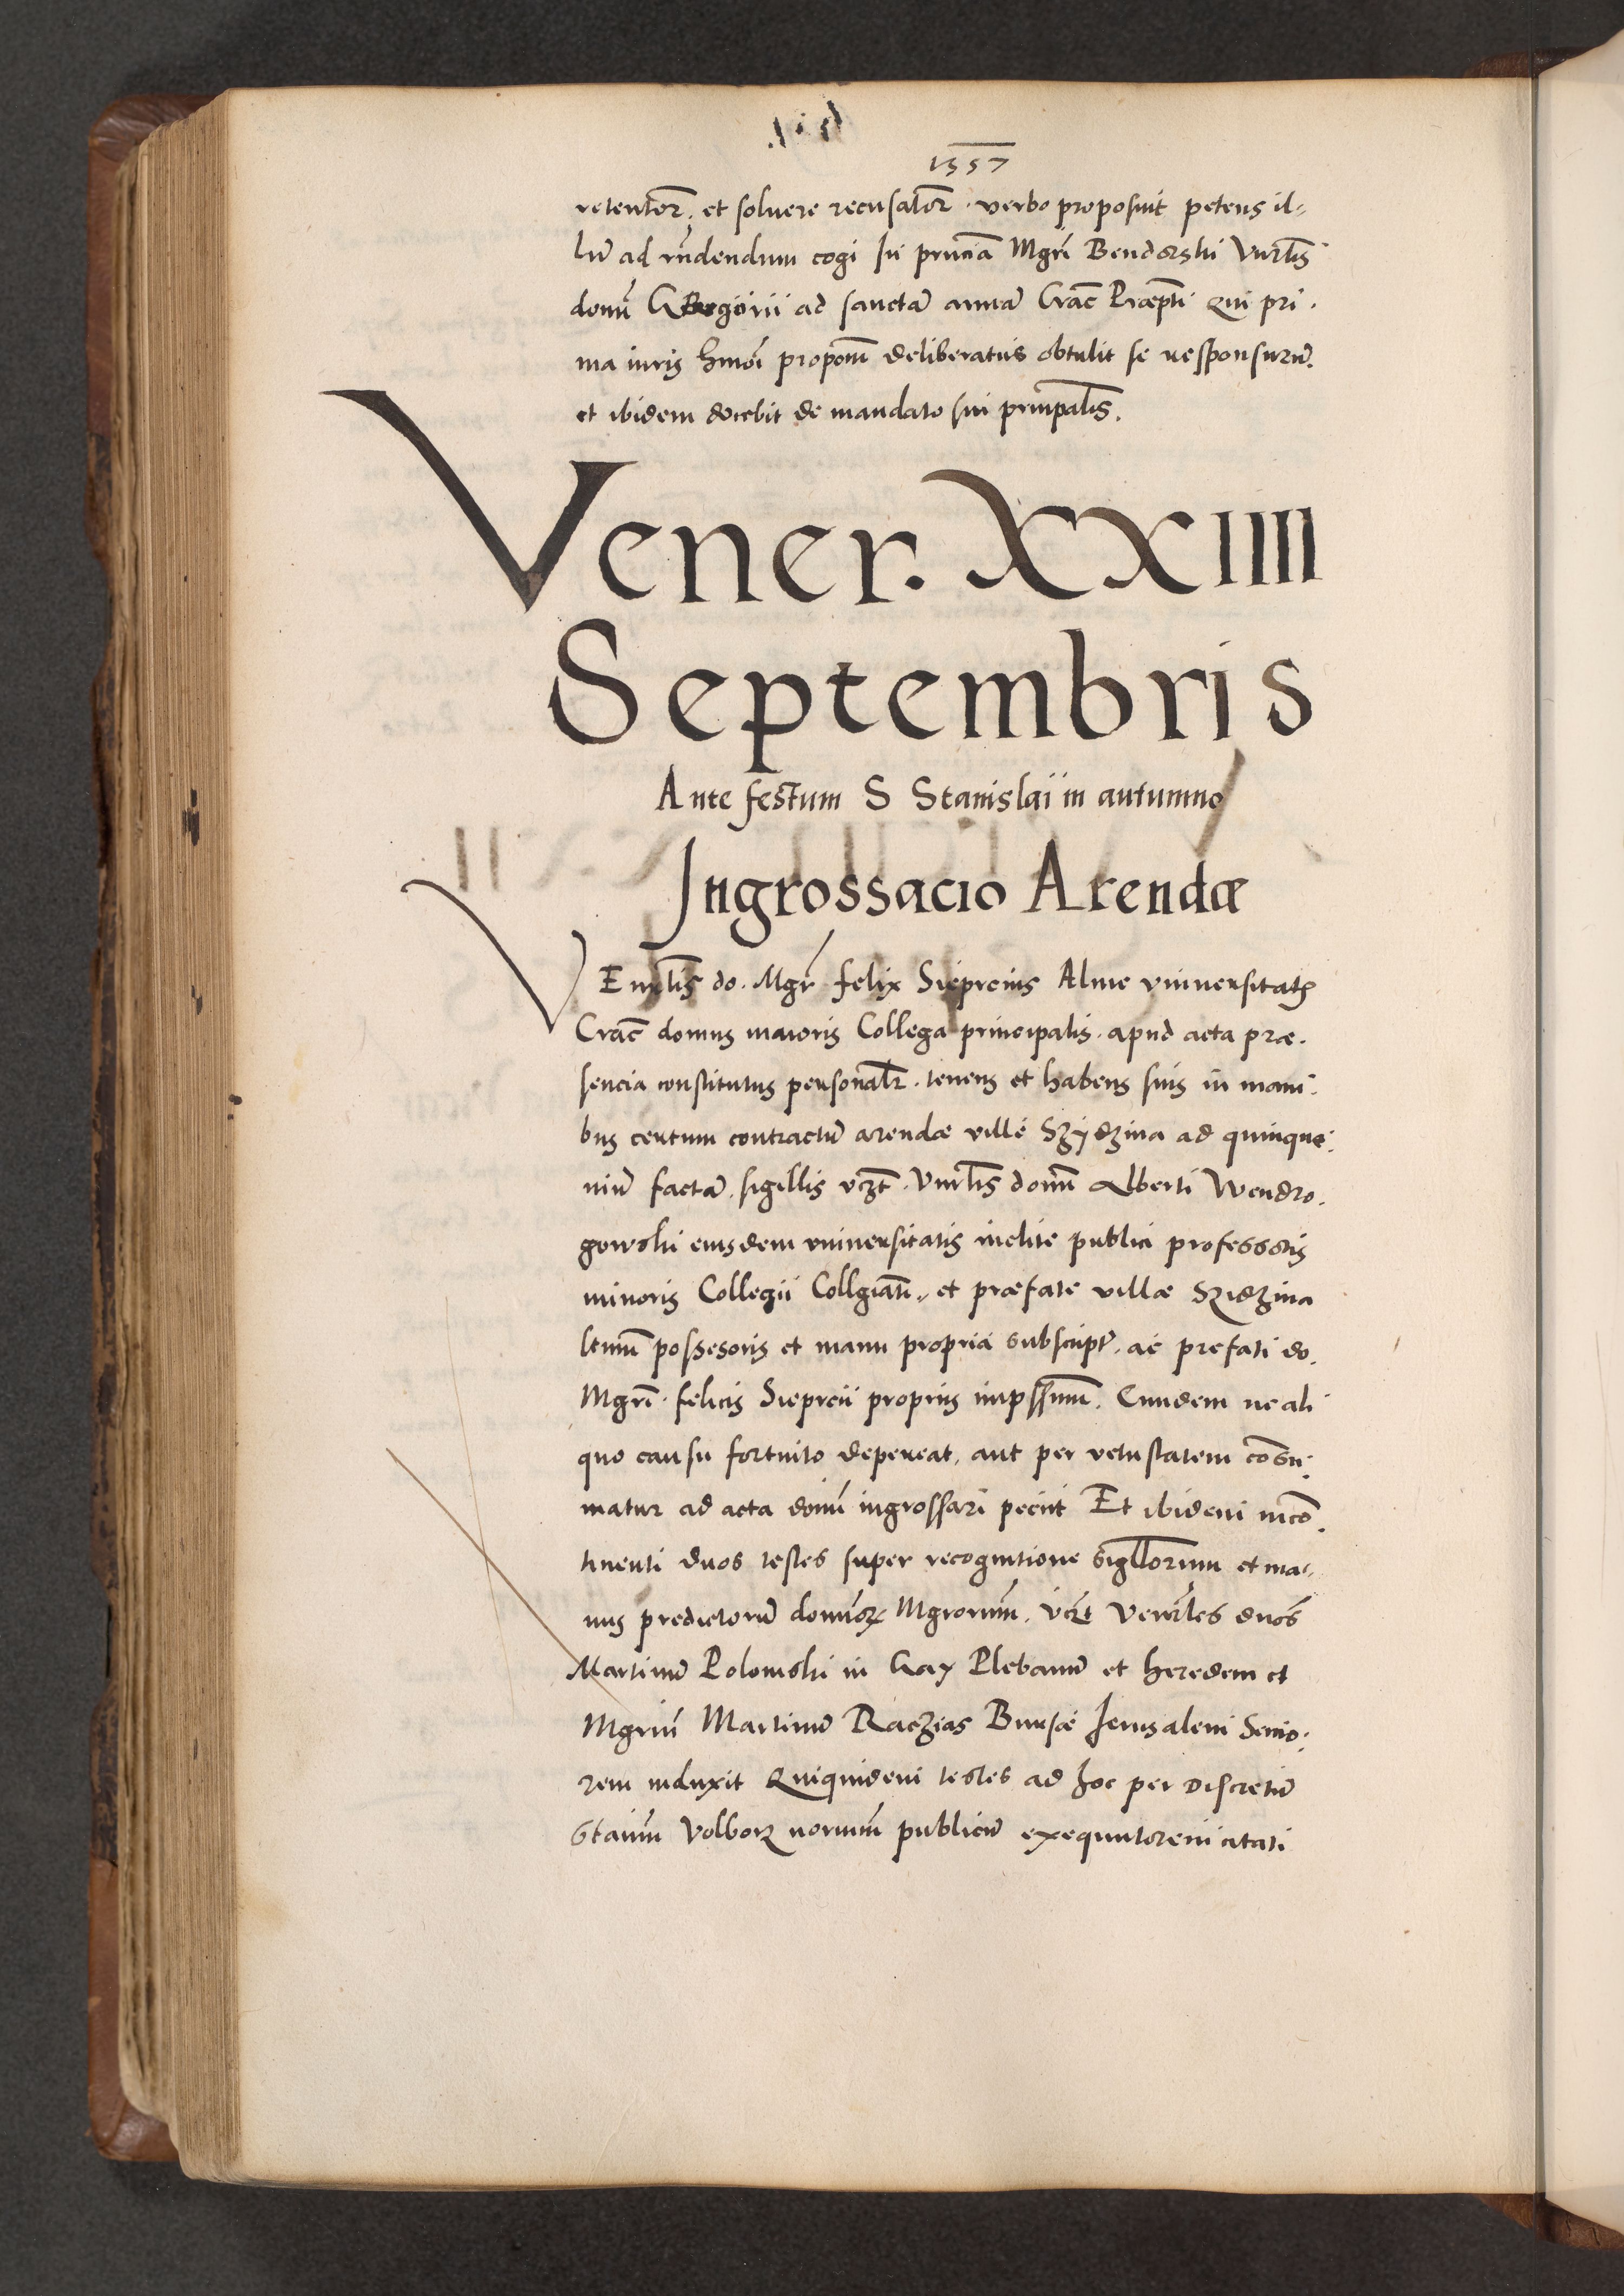 1557
retentor̃. et soluere recusator̃. verbo proposuit petens il=
lũ ad rñdendum cogi In pñcia Mgrĩ Bendorski Vnrl̃is
domĩ Gregorii ad sanctã annã Crac̃ Præpti Qui pri.
ma iuris hmõi proponĩ deliberatus obtulit se responsurũ.
et ibidem docebit de mandato sui prinpal̃is.
Vener. XXIIII
Septembris
Ante festum S Stanislai in autumno
Ingrossacio Arendæ
VEnrl̃is do. Mgr̃ felix Sieprcius Alme vniuersitatis
Crac̃ domus maioris Collega principalis. apud acta præ.
sencia constitutus personalr̃. tenens et habens suis in mani.
bus certum contractũ arendæ ville Szÿdzina ad quinque.
niũ factã. sigillis vczt̃. Vnrl̃is domĩ Alberti Wendro.
gowski eiusdem vniuersitatis inclite publici professoris
minoris Collegii Collgiati. et præfate villæ Szidzina
possesoris et manu propria subscript̃. ac prefati do.
Mgrĩ. felicis Sieprcii propriis impssum̃. Eundem ne ali
quo causu fortuito depereat, aut per vetustatem cõsu.
matur ad acta domĩ ingrossari peciit Et ibidem incõ.
tinenti duos testes super recognitione sigllorum et ma=
nus predictorũ domõr Mgrorum̃. vczt̃ Venrl̃es dnõs
Martinũ Polomski in Gay Plebanũ et heredem et
Mgrum̃ Martinũ Raczias Bursæ Jerusalem Senio.
rem induxit Quiquidem testes ad hoc per Discretũ
Stanm̃ Volborz norium̃ publicũ exequutorem citati